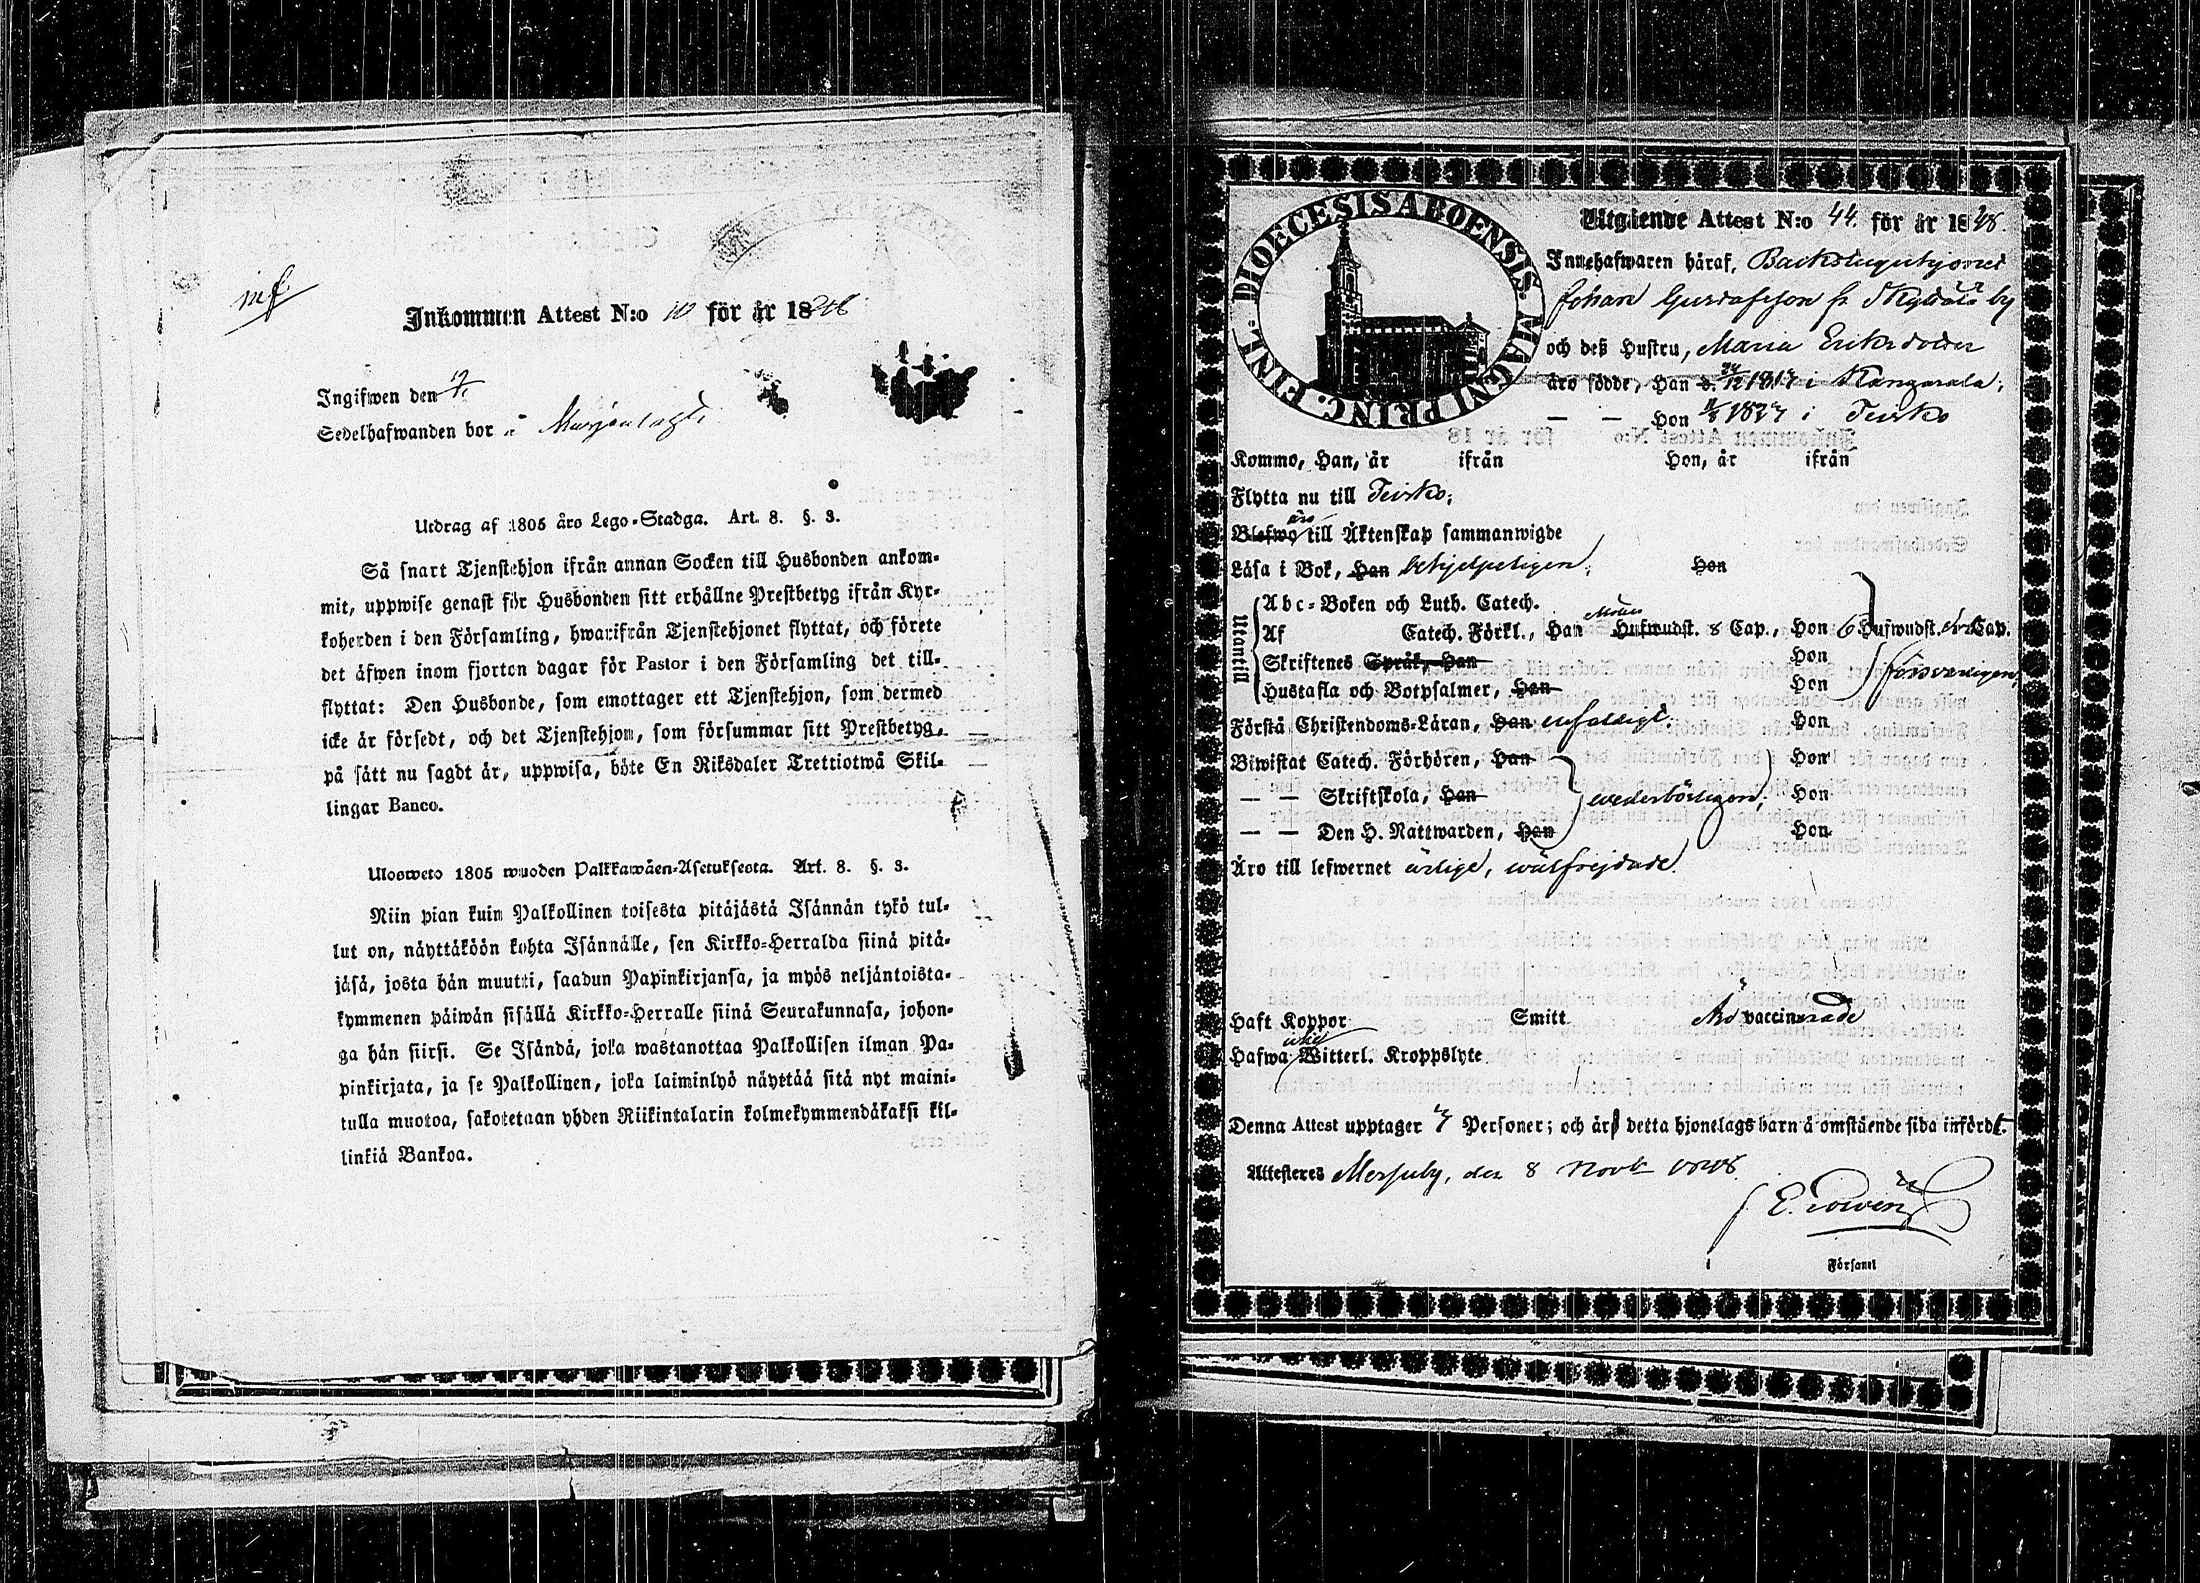 Inkommen Attest N:o 10 för år 1848
Ingifwen den
Sedelhafwanden bor
Utdrag af 1805 års Lego-Stadga. Art. 8. §. 3.
Så snart Tjenstehjon ifrån annan Socken till Husbonden ankom-
mit, uppwise genast för Husbonden sitt erhållne Prestbetyg ifrån Kyr-
koherden i den Församling, hwarifrån Tjenstehjonet flyttat, och förete
det äfwen inom fjorton dagar för Pastor i den Församling det till-
flyttat: Den Husbonde, som emottager ett Tjenstehjon, som dermed
icke är försedt, och det Tjenstehjon, som försummar sitt Prestbetyg,
på sätt nu sagdt är, uppwisa, böte En Riksdaler Trettiotwå Skil-
lingar Banco.
Ulosweto 1805 wuoden Palkkawäen-Asetuksesta. Art. 8. §. 3.
Niin pian kuin Palkollinen toisesta pitäjästä Isännän tykö tul-
lut on, näyttäköön kohta Isännälle, sen Kirkko-Herralda siinä pitä-
jäsä, josta hän muutti, saadun Papinkirjansa, ja myös neljäntoista-
kymmenen päiwän sisällä Kirkko-Herralle siinä Seurakunnasa, johon-
ga hän siirsi. Se Isändä, joka wastanottaa Palkollisen ilman Pa-
pinkirjata, ja se Palkollinen, joka laiminlyö näyttää sitä nyt maini-
tulla muotoa, sakotetaan yhden Riikintalarin kolmekymmendäkaksi kil-
linkiä Bankoa.
DIOECESIS ABOENSIS. MAGNI PRINC. FINL.
Utgående Attest N:o 44. för år 1848.
Innehafwaren häraf, Backstuguhjonet
Johan Gustafsson fr by
och deß Hustru, Maria Eriksdotter
äro födde, Han d. 1817 i Kangasala;
— — Hon 1827 i Teisko
Kommo, Han, år ifrån Hon, år ifrån
Flytta nu till Teisko;
Blefwo äro till Äktenskap sammanwigde
Läsa i Bok, Han behjelpeligen; Hon
Utantill
Abc-Boken och Luth. Catech.
Af Catech. Förkl., Han Hufwudst. 8 Cap., Hon 6 Hufwudst. Cap.
Skriftenes Språk, Han Hon
Hustafla och Botpsalmer, Han Hon försvarligen;
Förstå Christendoms-Läran, Han enfaldigt. Hon
Biwistat Catech. Förhören, Han Hon
— — Skriftskola, Han wederbörligen; Hon
— — Den H. Nattwarden, Han Hon
Äro till lefwernet ärlige, wälfrejdade.
Haft Koppor Smitt Äro vaccinerade
Hafwa icke Witterl. Kroppslyte
Denna Attest upptager Personer; och äro detta hjonelags barn å omstående sida införde.
Attesteras Messuby, den 8 Novb 1848.
E.
Församl